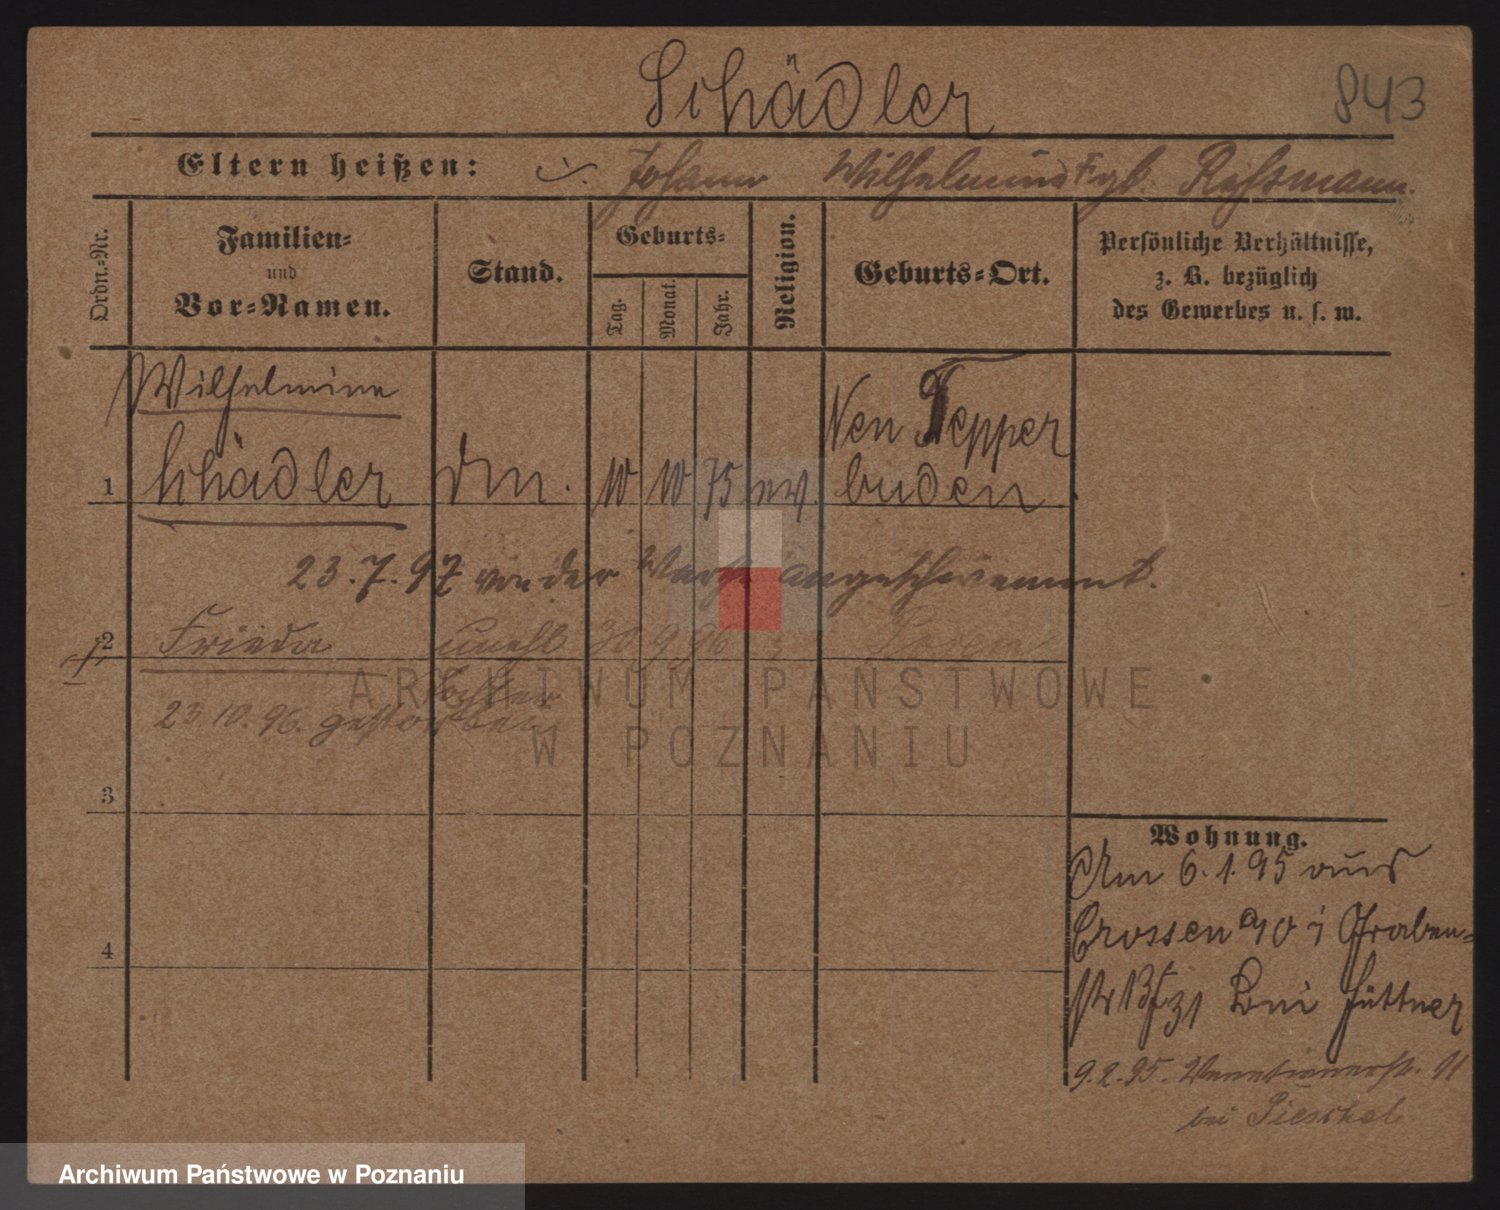 Schädler 843
Eltern heißen: Johann Wilhelmine geb. Rossmann.
Ordn.-Nr.
Familien-
und
Vor-Namen.
Stand.
Geburts-
Tag. Monat. Jahr.
Religion.
Geburts-Ort.
Persönliche Verhältnisse,
z. B. bezüglich
des Gewerbes u. s. w.
Wilhelmine Neu Tepper
1 Schädler 10 10 75 ev. buden
23.7.97 von der angeschwemmt.
2 Frieda unehl 30 9 96 Posen
Tochter
23.10.96. gestorben
3
4
Wohnung.
Am 6.1.95 aus
Crossen a/O i Graben-
str 13 bei Hüttner
9.2.95. Venetianerstr. 11
bei
ARCHIWUM PAŃSTWOWE
W POZNANIU
Archiwum Państwowe w Poznaniu